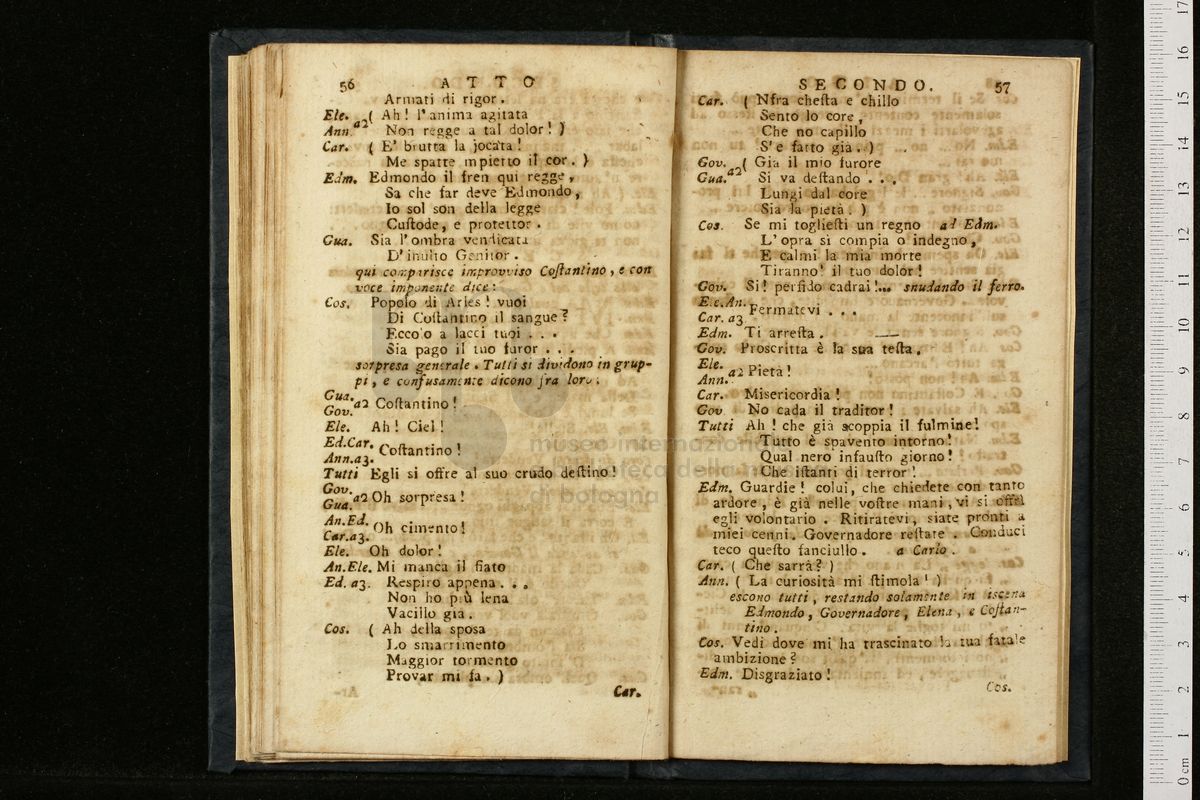 56 ATTO
Armati di rigor.
Ele. a2 ( Ah! l'anima agitata
Ann. Non regge a tal dolor! )
Car. ( E' brutta la jocata!
Me spatte mpietto il cor. )
Edm. Edmondo il fren qui regge,
Sa che far deve Edmondo,
Io sol son della legge
Cuſtode, e protettor.
Gua. Sia l'ombra vendicata
D'inulto Genitor.
qui comparisce improvviso Coſtantino, e con
voce imponente dice:
Cos. Popolo di Arles! vuoi
Di Coſtantino il sangue?
Eccolo a lacci tuoi . . .
Sia pago il tuo furor . . .
sorpresa generale. Tutti si dividono in grup-
pi, e confusamente dicono fra loro:
Gua.
Gov. a2 Coſtantino!
Ele. Ah! Ciel!
Ed.Car.
Ann.a3. Coſtantino!
Tutti Egli si offre al suo crudo deſtino!
Gov.
Gua. a2 Oh sorpresa!
An.Ed.
Car.a3. Oh cimento!
Ele. Oh dolor!
An.Ele. Mi manca il fiato
Ed. a3. Respiro appena . . .
Non ho più lena
Vacillo gia.
Cos. ( Ah della sposa
Lo smarrimento
Maggior tormento
Provar mi fa. )
Car.
SECONDO. 57
Car. ( Nfra cheſta e chillo
Sento lo core,
Che no capillo
S'e fatto già. )
Gov. a2 ( Gia il mio furore
Gua. Si va deſtando . . .
Lungi dal core
Sia la pietà. )
Cos. Se mi toglieſti un regno ad Edm.
L'opra si compia o indegno,
E calmi la mia morte
Tiranno! il tuo dolor!
Gov. Si! perfido cadrai!... snudando il ferro.
E.e.An.
Car. a3. Fermatevi . . .
Edm. Ti arreſta.
Gov. Proscritta è la sua teſta.
Ele.
Ann. a2 Pietà!
Car. Misericordia!
Gov No cada il traditor!
Tutti Ah! che già scoppia il fulmine!
Tutto è spavento intorno!
Qual nero infauſto giorno!
Che iſtanti di terror!
Edm. Guardie! colui, che chiedete con tanto
ardore, è già nelle voſtre mani, vi si offrì
egli volontario. Ritiratevi, siate pronti a
miei cenni. Governadore reſtate. Conduci
teco queſto fanciullo. a Carlo.
Car. ( Che sarrà? )
Ann. ( La curiosità mi ſtimola! )
escono tutti, restando solamente in iscena
Edmondo, Governadore, Elena, e Coſtan-
tino.
Cos. Vedi dove mi ha trascinato la tua fatale
ambizione?
Edm. Disgraziato!
Cos.
museo internazionale
biblioteca della
di bologna
0 cm 1 2 3 4 5 6 7 8 9 10 11 12 13 14 15 16 17